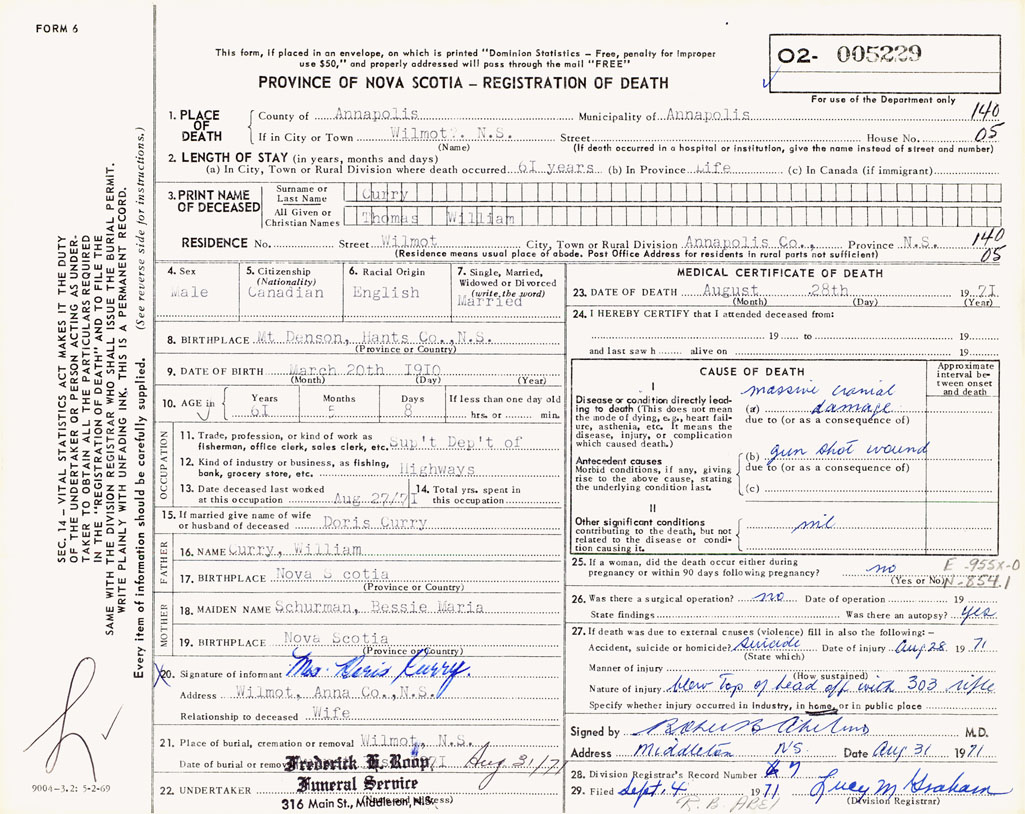 FORM 6
This form, if placed in an envelope, on which is printed "Dominion Statistics – Free, penalty for improper
use $50," and properly addressed will pass through the mail "FREE"
PROVINCE OF NOVA SCOTIA – REGISTRATION OF DEATH
02- 005229
For use of the Department only
1. PLACE OF DEATH { County of Annapolis Municipality of Annapolis 140
If in City or Town Wilmot, N.S. Street House No. 05
(Name) (If death occurred in a hospital or institution, give the name instead of street and number)
2. LENGTH OF STAY (in years, months and days)
(a) In City, Town or Rural Division where death occurred 61 years (b) In Province Life (c) In Canada (if immigrant)
3. PRINT NAME OF DECEASED
Surname or Last Name Curry
All Given or Christian Names Thomas William
RESIDENCE No. Street Wilmot City, Town or Rural Division Annapolis Co., Province N.S. 140
(Residence means usual place of abode. Post Office Address for residents in rural parts not sufficient) 05
4. Sex
Male
5. Citizenship
(Nationality)
Canadian
6. Racial Origin
English
7. Single, Married,
Widowed or Divorced
(write the word)
Married
8. BIRTHPLACE Mt Denson, Hants Co., N.S.
(Province or Country)
9. DATE OF BIRTH March 20th 1910
(Month) (Day) (Year)
10. AGE in
Years Months Days If less than one day old
61 5 8 hrs. or min.
OCCUPATION
11. Trade, profession, or kind of work as
fisherman, office clerk, sales clerk, etc. Sup't Dep't of
12. Kind of industry or business, as fishing,
bank, grocery store, etc. Highways
13. Date deceased last worked
at this occupation Aug 27/71
14. Total yrs. spent in
this occupation
15. If married give name of wife
or husband of deceased Doris Curry
FATHER
16. NAME Curry, William
17. BIRTHPLACE Nova Scotia
(Province or Country)
MOTHER
18. MAIDEN NAME Schurman, Bessie Maria
19. BIRTHPLACE Nova Scotia
(Province or Country)
20. Signature of informant Mrs. Doris Curry.
Address Wilmot, Anna Co., N.S.
Relationship to deceased Wife
21. Place of burial, cremation or removal Wilmot, N.S.
Date of burial or removal Aug 31/71
22. UNDERTAKER
Frederick H. Roop
Funeral Service
316 Main St., Middleton, N.S.
MEDICAL CERTIFICATE OF DEATH
23. DATE OF DEATH August 28th 1971
(Month) (Day) (Year)
24. I HEREBY CERTIFY that I attended deceased from:
19 to 19
and last saw h alive on 19
CAUSE OF DEATH
Approximate
interval be-
tween onset
and death
I
Disease or condition directly lead-
ing to death (This does not mean
the mode of dying, e.g., heart fail-
ure, asthenia, etc. It means the
disease, injury, or complication
which caused death.)
massive cranial
(a) damage
due to (or as a consequence of)
Antecedent causes
Morbid conditions, if any, giving
rise to the above cause, stating
the underlying condition last.
(b) gun shot wound
due to (or as a consequence of)
(c)
II
Other significant conditions
contributing to the death, but not
related to the disease or condi-
tion causing it.
nil
25. If a woman, did the death occur either during
pregnancy or within 90 days following pregnancy? no
(Yes or No)
E-955X-0
N-854.1
26. Was there a surgical operation? no Date of operation 19
State findings Was there an autopsy? yes
27. If death was due to external causes (violence) fill in also the following:–
Accident, suicide or homicide? Suicide Date of injury Aug 28 1971
(State which)
Manner of injury
(How sustained)
Nature of injury blew top of head off with 303 rifle
Specify whether injury occurred in industry, in home, or in public place
Signed by M.D.
Address Middleton NS Date Aug 31 1971
28. Division Registrar's Record Number 7
29. Filed Sept. 4 1971 Lucy M Graham
(Division Registrar)
SEC. 14 – VITAL STATISTICS ACT MAKES IT THE DUTY
OF THE UNDERTAKER OR PERSON ACTING AS UNDER-
TAKER TO OBTAIN ALL THE PARTICULARS REQUIRED
IN THE "REGISTRATION OF DEATH" AND TO FILE THE
SAME WITH THE DIVISION REGISTRAR WHO SHALL ISSUE THE BURIAL PERMIT.
WRITE PLAINLY WITH UNFADING INK. THIS IS A PERMANENT RECORD.
Every item of information should be carefully supplied. (See reverse side for instructions.)
9004-3.2: 5-2-69